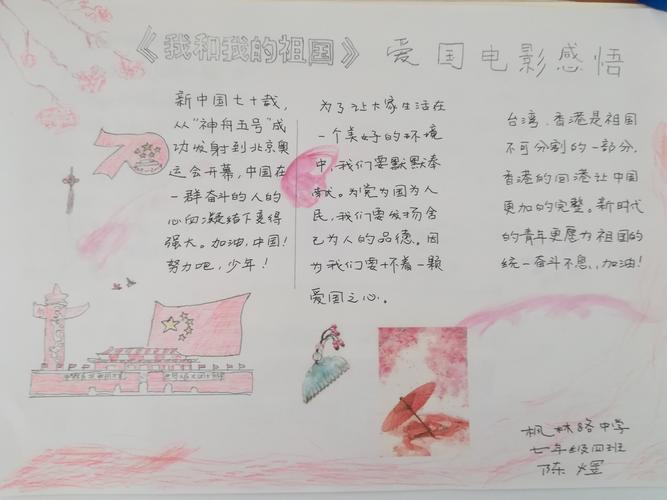 《我和我的祖国》 爱国电影感悟
新中国七十载，
从“神舟五号”成
功发射到北京奥
运会开幕，中国在
一群奋斗的人的
心向凝结下变得
强大。加油，中国！
努力吧，少年！
为了让大家生活在
一个美好的环境
中，我们要默默奉
献。为党为国为人
民，我们要发扬舍
己为人的品德。因
为我们要怀着一颗
爱国之心。
台湾、香港是祖国
不可分割的一部分，
香港的回港让中国
更加的完整。新时代
的青年更愿为祖国的
统一奋斗不息，加油！
枫林路中学
七年级四班
陈煜